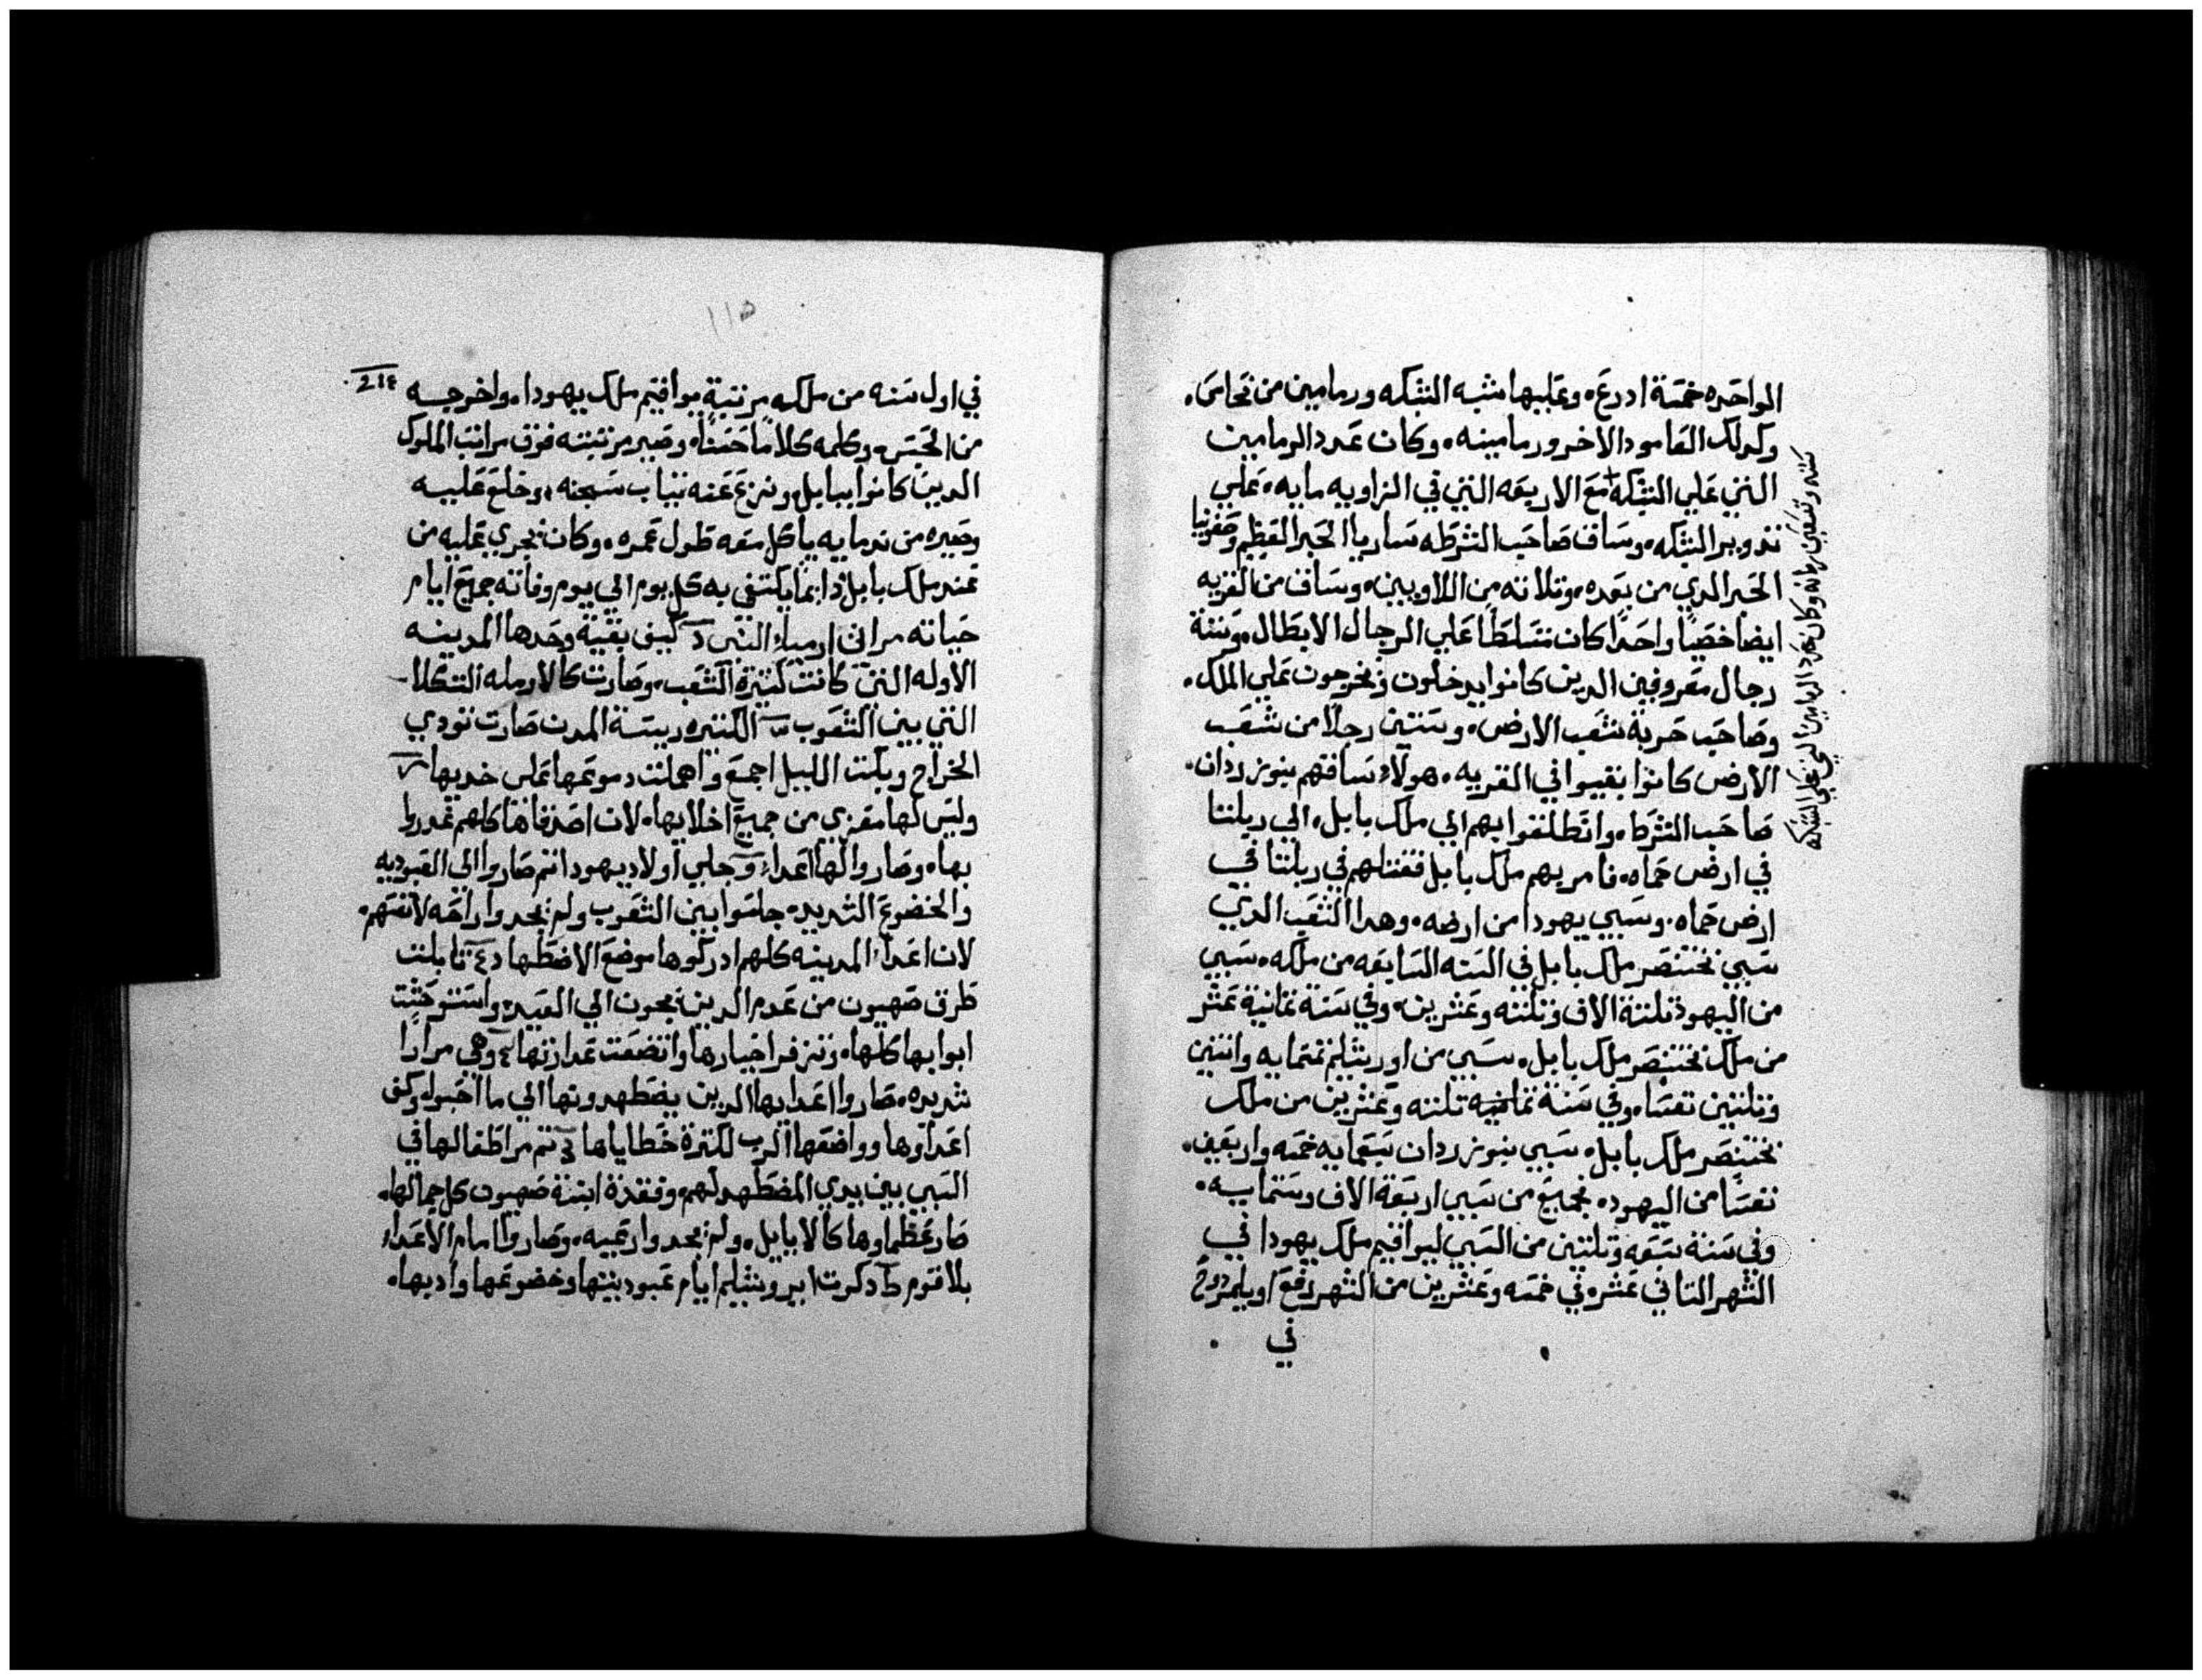 الواحده خمسة ادرع، وعليها شبه الشبكه ورمامين من نحاس.
وكدلك العامود الاخر ورمامينه، وكان عدد الرمامين
التي علي الشبكه مع الاربعه التي في الزاويه مايه، علي
تدوير الشبكه، وساق صاحب الشرطه ساريا الحبر العظيم وصفونيا
الحبر الدي من بعده، وتلاته من اللاويين، وساق من القريه
ايضا خصيا واحدا كان متسلطا علي الرجال الابطال، وستة
رجال معروفين الدين كانوا يدخلون ويخرجون علي الملك.
وصاحب حربة شعب الارض، وستين رجلا من شعب
الارض كانوا بقيوا في القريه، هولاء ساقهم بنوزردان.
صاحب الشرط، وانطلقوا بهم الي ملك بابل، الي ربلتا
في ارض حماه، فامر بهم ملك بابل فقتلهم في ربلتا في
ارض حماه. وسبي يهودا من ارضه، وهدا الشعب الدي
سبي بختنصر ملك بابل في السنه السابعه من ملكه، سبي
من اليهود تلتة الاف وتلته وعشرين، وفي سنة تمانية عشر
من ملك بختنصر ملك بابل، سبي من اورشليم تمنمايه واتنين
وتلتين نفسا، وفي سنة تلته وعشرين من ملك
بختنصر ملك بابل، سبي بنوزردان سبعمايه خمسه واربعين.
نفسا من اليهود، فجميع من سبي اربعة الاف وستمايه.
وفي سنة سبعه وتلتين من السبي ليواقيم ملك يهودا في
الشهر التاني عشر، في خمسه وعشرين من الشهر رفع اويلمردوخ
في
سته وتسعين رمانه وكان عدد الرمامين التي علي الشبكه
115
214
في اول سنه من ملكه مرتبة يواقيم ملك يهودا، واخرجه
من الحبس، وكلمه كلاما حسنا، وصير مرتبته فوق مراتب الملوك
الدين كانوا ببابل، ونزع عنه تياب سجنه، وخلع عليه
وصيره من ندمايه ياكل معه طول عمره، وكان يجري عليه من
عند ملك بابل دايما يكتفي به كل يوم الي يوم وفاته جميع ايام
حياته مراتي ارمياء النبي كيف بقية وحدها المدينه
الاوله التي كانت كتيرة الشعب، وصارت كالارمله التكلا
التي بين الشعوب الكتيره ريسة المدن صارت تودي
الخراج وبكت الليل اجمع واهملت دموعها علي خديها
وليس لها معزي من جميع اخلايها، لان اصدقاها كلهم غدروا
بها، وصاروا لها اعداء جلي اولاد يهودا تم صاروا الي العبوديه
والخضوع الشديد، جلسوا بين الشعوب ولم يجدوا راحه لانفسهم.
لان اعداء المدينه كلهم ادركوها موضع الاضطهاد تابلت
طرق صهيون من عدم الدين يحجون الي العيد، واستوحشت
ابوابها كلها، وتزفر احبارها واتضعت عداراتها وهي مرارا
شديده، صاروا اعدايها الدين يضطهدونها الي ما احبوا، وكفى
اعداوها وواضعها الرب لكترة خطاياها تم مر اطفالها في
السبي بين يدي المضطهد لهم، وفقدة ابنة صهيون كل جمالها.
صار عظماوها كالايايل، ولم يجدوا رعيه، وصاروا امام الاعداء
بلا قوه دكرت ايروشليم ايام عبوديتها وخضوعها وادبها،